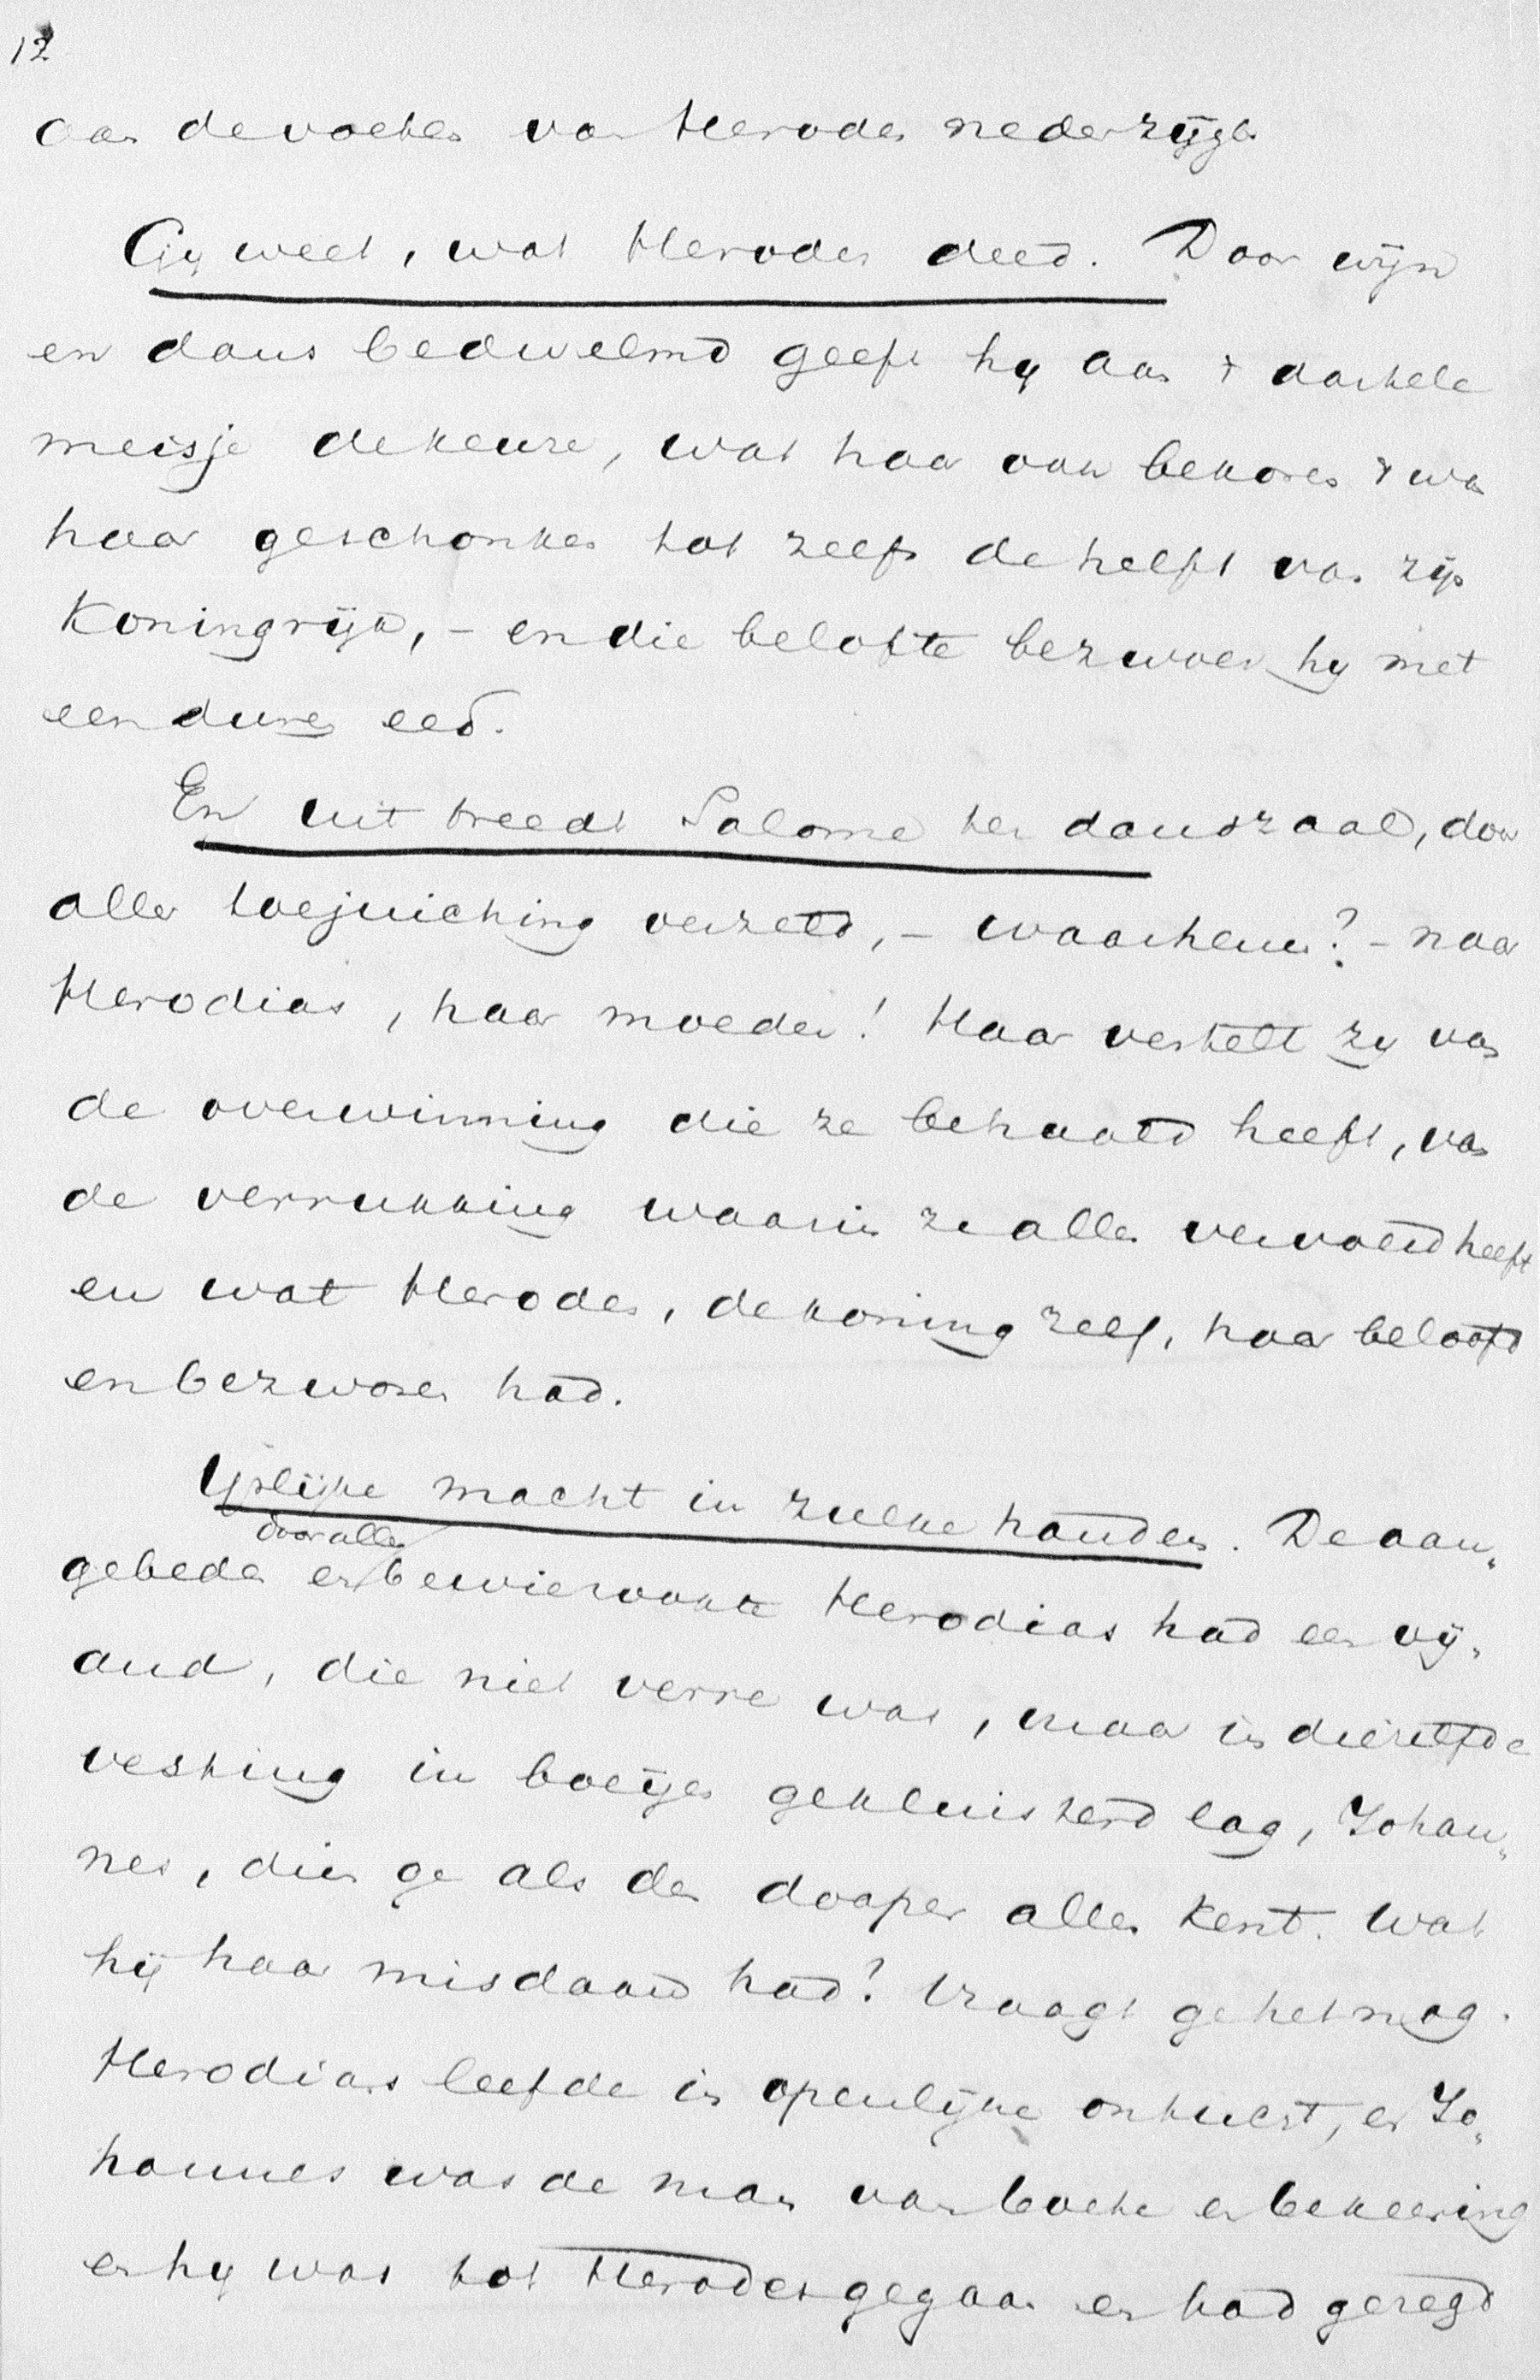 12
aan de voeten van Herodes nederzijgt
Gij weet, wat Herodes deed. Door wijn
en dans bedwelmd geeft hij aan 't dartele
meisje de keure, wat haar ook bekoren 't was
haar geschonken tot zelfs de helft van zijn
Koningrijk, - en die belofte bezwoer hij met
een duren eed.
En uit treedt Salome ter danszaal, door
aller toejuiching verzeld, - waarheen? - naar
Herodias, haar moeder! Haar vertelt zij van
de overwinning die ze behaald heeft, van
de verrukking waarin ze allen vervoerd heeft
en wat Herodes, de koning zelf, haar beloofd
en bezworen had.
IJslijke macht in zulke handen. De aan„
gebeden en door allen bewierookte Herodias had een vij„
and, die niet verre was, maar in diezelfde
vesting in boeijen gekluisterd lag, Johan„
nes, dien ge als den dooper allen kent. Wat
hij haar misdaan had? Vraagt ge het nog.
Herodias leefde in openlijke ontucht, en Jo„
hannes was de man van boete en bekeering
en hij was tot Herodes gegaan en had gezegd